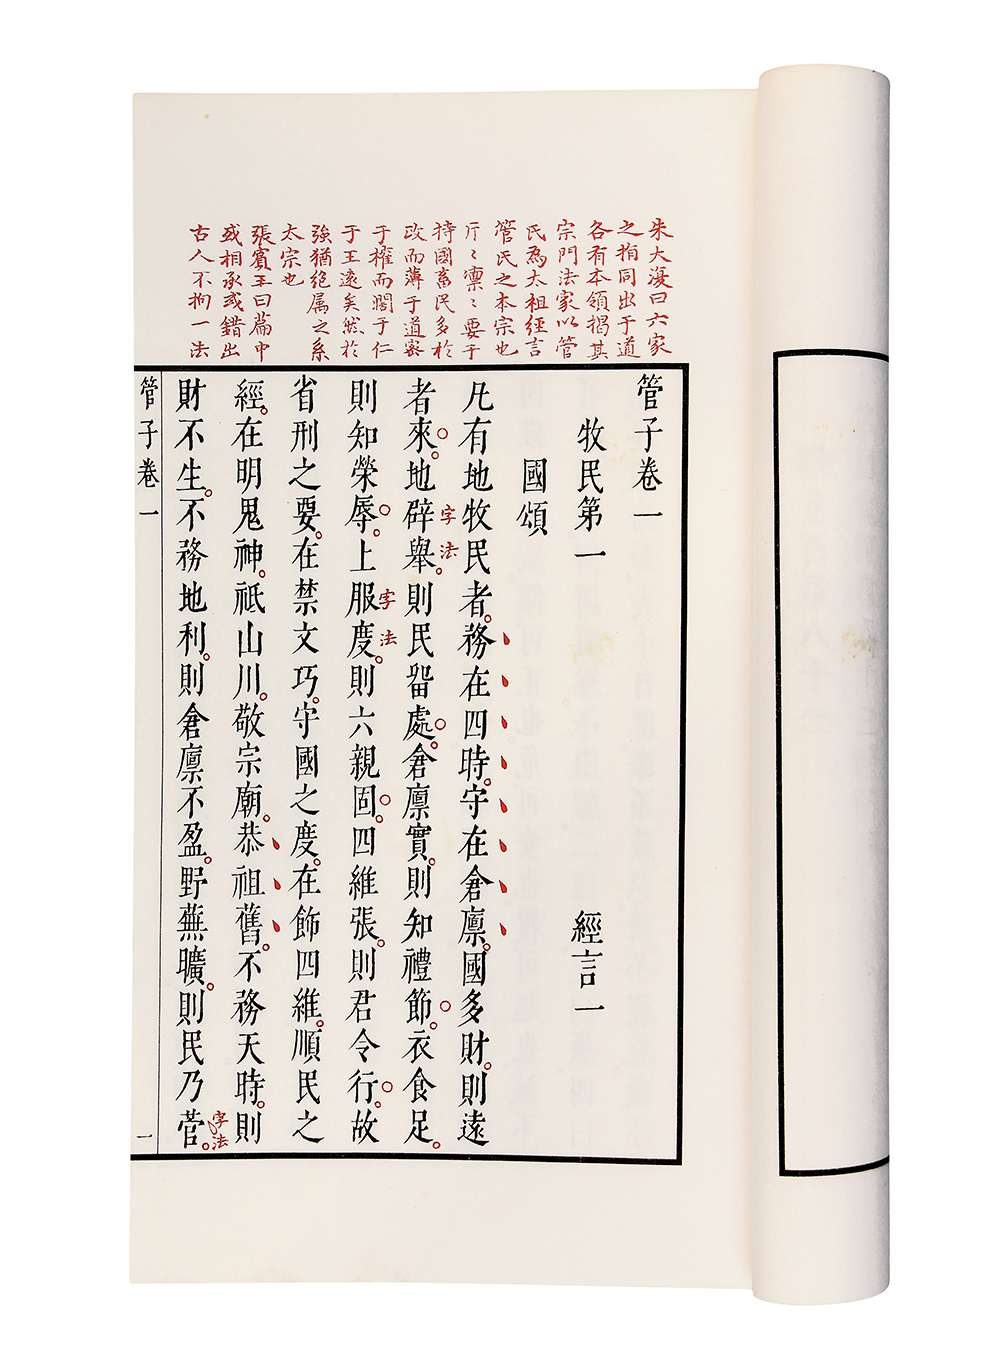 朱大復曰六家
之指同出于道
各有本領揭其
宗門法家以管
氏為太祖經言
管氏之本宗也
斤〻凜〻要于
持國畜民多於
政而薄于道密
于權而闊于仁
于王遠矣然於
強猶絕属之系
太宗也
張賓王曰篇中
或相承或錯出
古人不拘一法
管子卷一
牧民第一　經言一
國頌
凡有地牧民者。務在四時。守在倉廩。國多財。則遠
者來。地辟舉。則民畱處。倉廩實。則知禮節。衣食足。
字法
則知榮辱。上服度。則六親固。四維張。則君令行。故
字法
省刑之要。在禁文巧。守國之度。在飾四維。順民之
經。在明鬼神。祇山川。敬宗廟。恭祖舊。不務天時。則
財不生。不務地利。則倉廩不盈。野蕪曠。則民乃菅。
字法
管子卷一
一